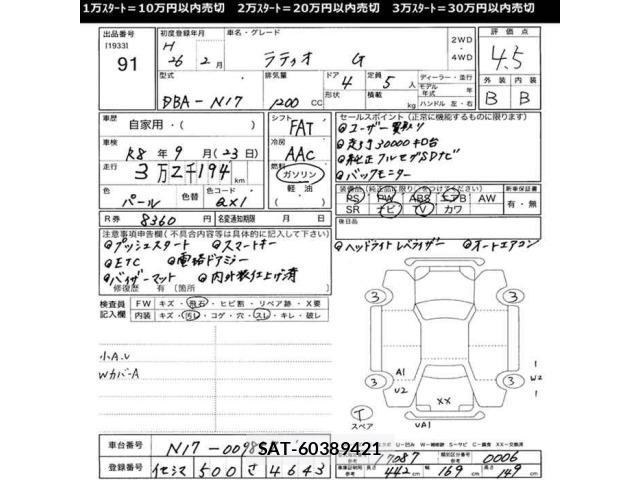 1万スタート＝10万円以内売切　2万スタート＝20万円以内売切　3万スタート＝30万円以内売切
出品番号 [1933] 91
初度登録年月 H 26年 2月
車名・グレード ラティオ G
2WD・4WD
評価点 4.5
型式 DBA-N17
排気量 1200 CC
ドア 4 形状
定員 5人 積載 kg
ディーラー・並行
モデル年式 年
ハンドル 左・右
外装 B 内装 B
車歴 自家用・( )
シフト FAT
セールスポイント (正常に機能するものに限ります)
ユーザー買取り
走行30000キロ台
純正フルセグSDナビ
バックモニター
車検 R8年 9月 (23日)
冷房 AAC
走行 3万2千194 km
燃料 ガソリン 軽油 ( )
色 パール 色コード QX1
装備品 (純正品に限り○をつけてください)
PS PW ABS エアB AW
SR ナビ TV カワ
新車保証書 有・無
R券 8360円 名変通知期限 月 日
後日品
注意事項申告欄 (不具合内容等は具体的に記入して下さい)
プッシュスタート スマートキー
ETC 電格ドアミラー
バイザーマット 内外装仕上げ済
修復歴 有 (箇所 )
ヘッドライトレベライザー オートエアコン
検査員記入欄
FW キズ・飛石・ヒビ割・リペア跡・X要
内装 キズ・汚レ・コゲ・穴・スレ・キレ・破レ
小A.U
Wカバー A
3 3 3 3
A1 U2
1 W2 1
XX
UA1
T スペア
U－凹み W－補修跡 S－サビ C－腐食 XX－交換済
車台番号 N17-0098
SAT-60389421
登録番号 イセシマ 500 さ 4643
17087 類別区分番号 0006
車庫証明用参考 長さ 442 cm 幅 169 cm 高さ 149 cm